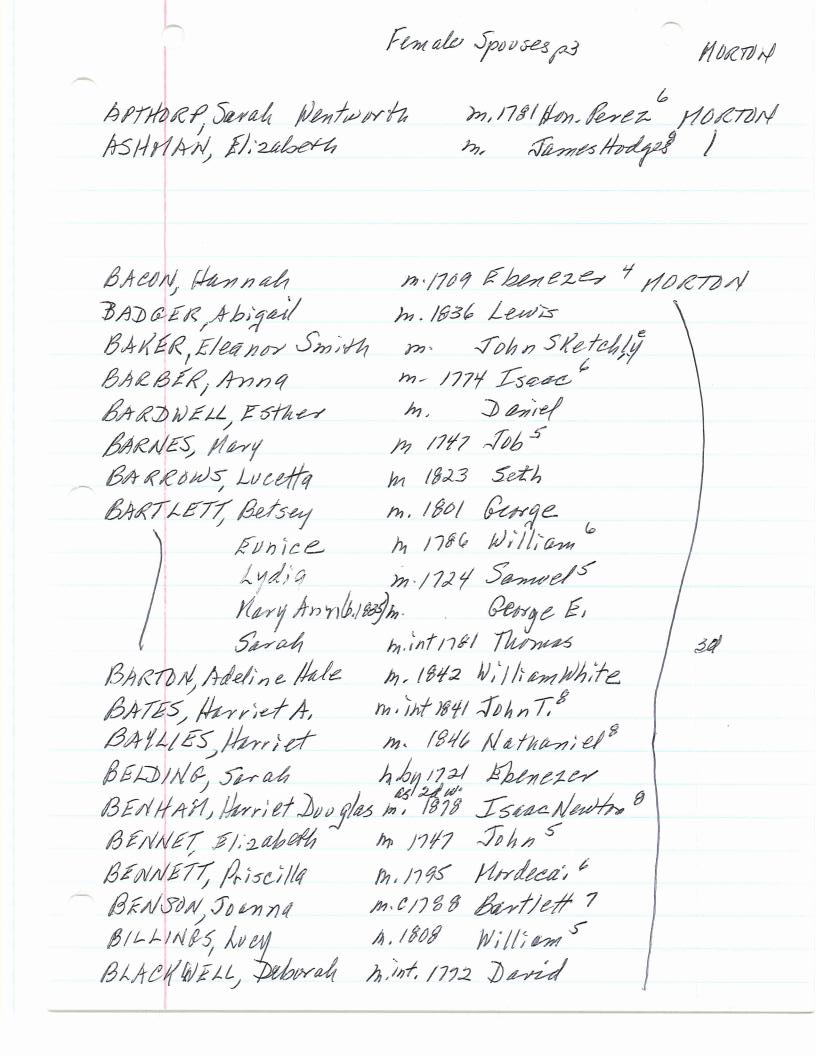 Female Spouses p3 MORTON
APTHORP, Sarah Wentworth m. 1781 Hon. Perez 6 MORTON
ASHMAN, Elizabeth m. James Hodges 8
BACON, Hannah m. 1709 Ebenezer 4 MORTON
BADGER, Abigail m. 1836 Lewis
BAKER, Eleanor Smith m. John Sketchly
BARBER, Anna m- 1774 Isaac 6
BARDWELL, Esther m. Daniel
BARNES, Mary m 1747 Job 5
BARROWS, Lucetta m 1823 Seth
BARTLETT, Betsey m. 1801 George
Eunice m 1786 William 6
Lydia m. 1724 Samuel 5
Mary Ann (b. 1835) m. George E.
Sarah m. int 1781 Thomas 3d
BARTON, Adeline Hale m. 1842 William White
BATES, Harriet A. m. int 1841 John T. 8
BAYLIES, Harriet m. 1846 Nathaniel 8
BELDING, Sarah by 1721 Ebenezer
as 2d w.
BENHAM, Harriet Douglas m. 1878 Isaac Newton 8
BENNET, Elizabeth m 1747 John 5
BENNETT, Priscilla m. 1795 Mordecai 6
BENSON, Joanna m. c 1788 Bartlett 7
BILLINGS, Lucy m. 1808 William 5
BLACKWELL, Deborah m. int. 1772 David